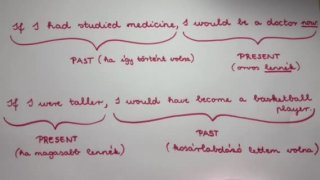 If I had studied medicine, I would be a doctor now
PAST (ha így történt volna)
PRESENT
(orvos lennék)
If I were taller, I would have become a basketball
player.
PRESENT
(ha magasabb lennék)
PAST
(kosárlabdázó lettem volna)